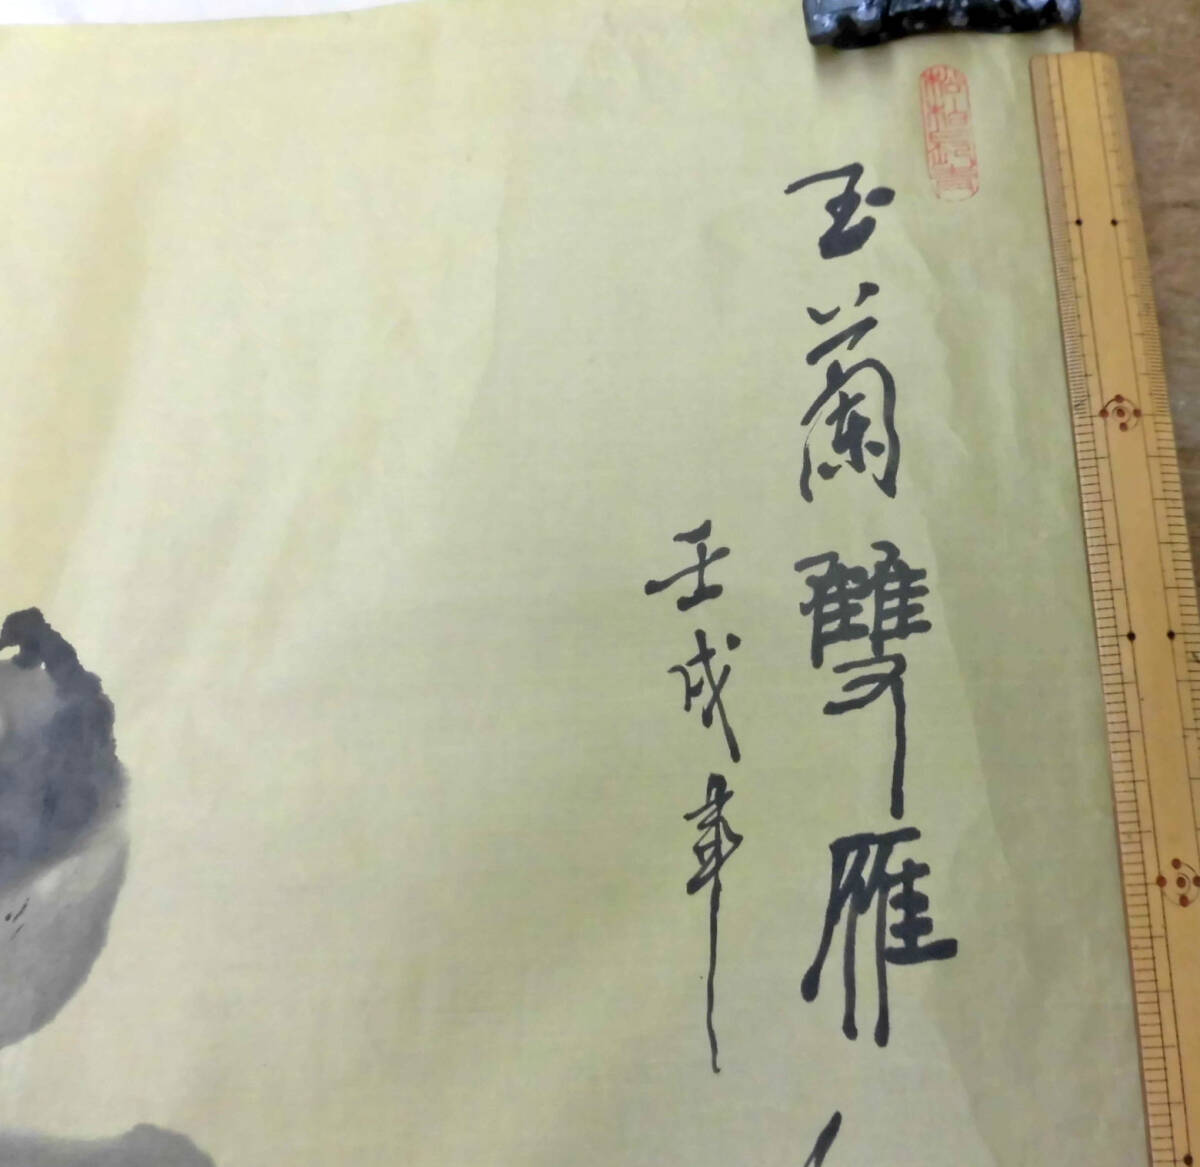 玉蘭雙雁
壬戌年